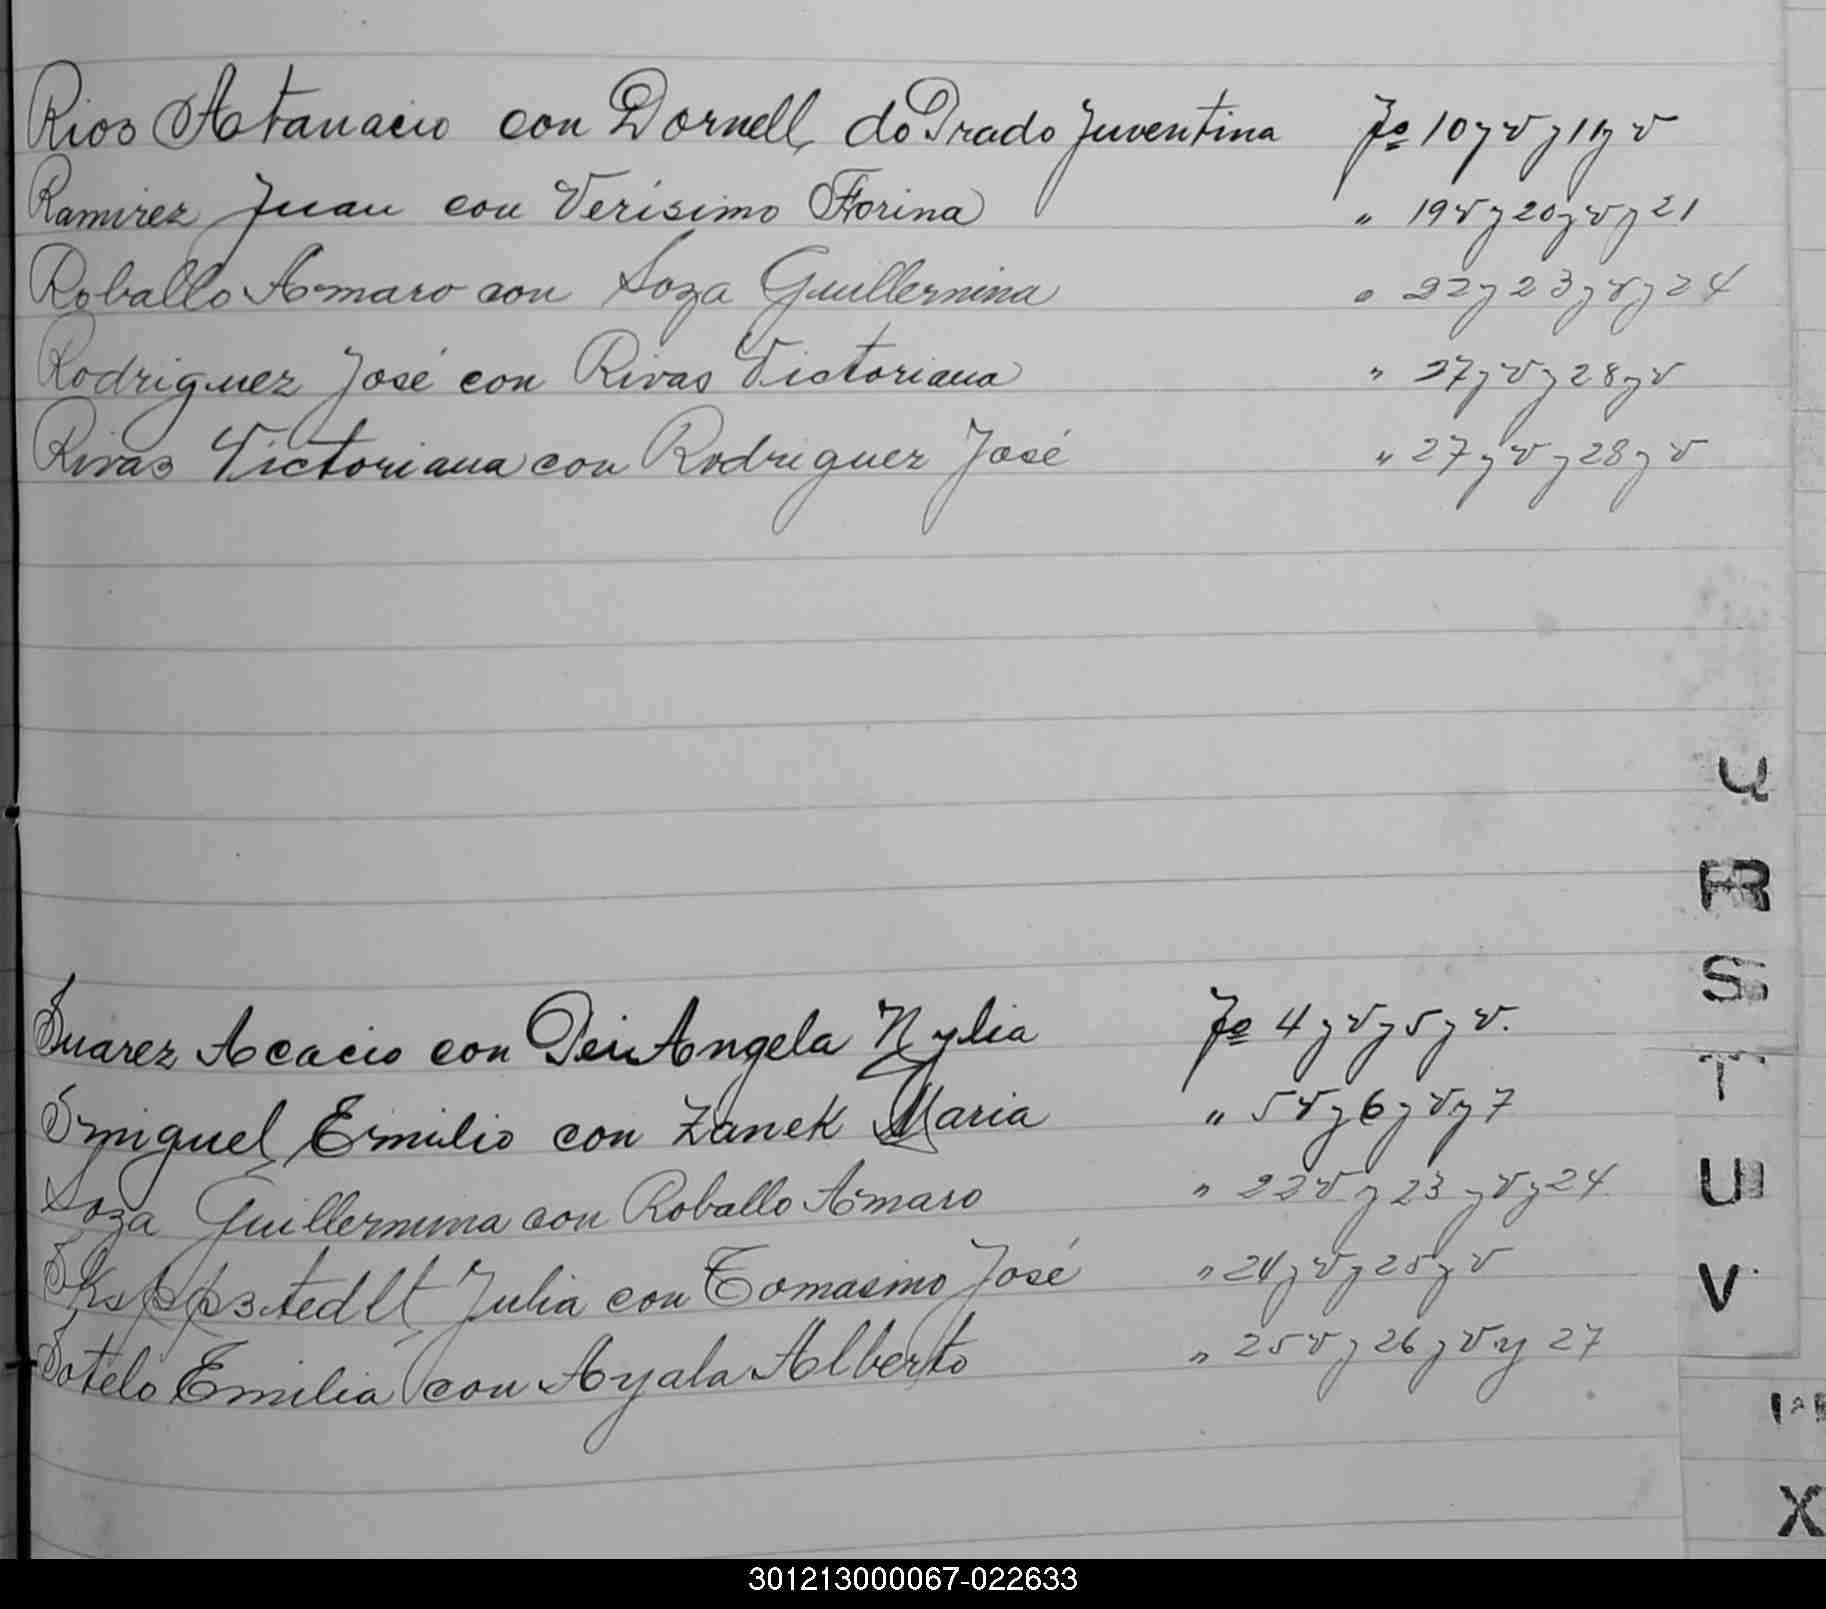 Rios Atanacio con Dornell, do Prado Juventina Fo 10 y v y 11 y v
Ramirez Juan con Verisimo Florina " 19 v y 20 y v y 21
Roballo Amaro con Soza Guillermina " 22 y 23 y v y 24
Rodriguez José con Rivas Victoriana " 27 y v y 28 y v
Rivas Victoriana con Rodriguez José " 27 y v y 28 y v
Q
R
S
Suarez Acacio con Angela Nylia Fo 4 y v y 5 y v.
T
Smiguel Emilio con Zanek Maria " 5 v y 6 y v y 7
U
Soza Guillermina con Roballo Amaro " 22 v y 23 y v y 24.
Julia con Tomasino José " 24 y v y 25 y v
V
Sotelo Emilia con Ayala Alberto " 25 v y 26 y v y 27
X
301213000067-022633